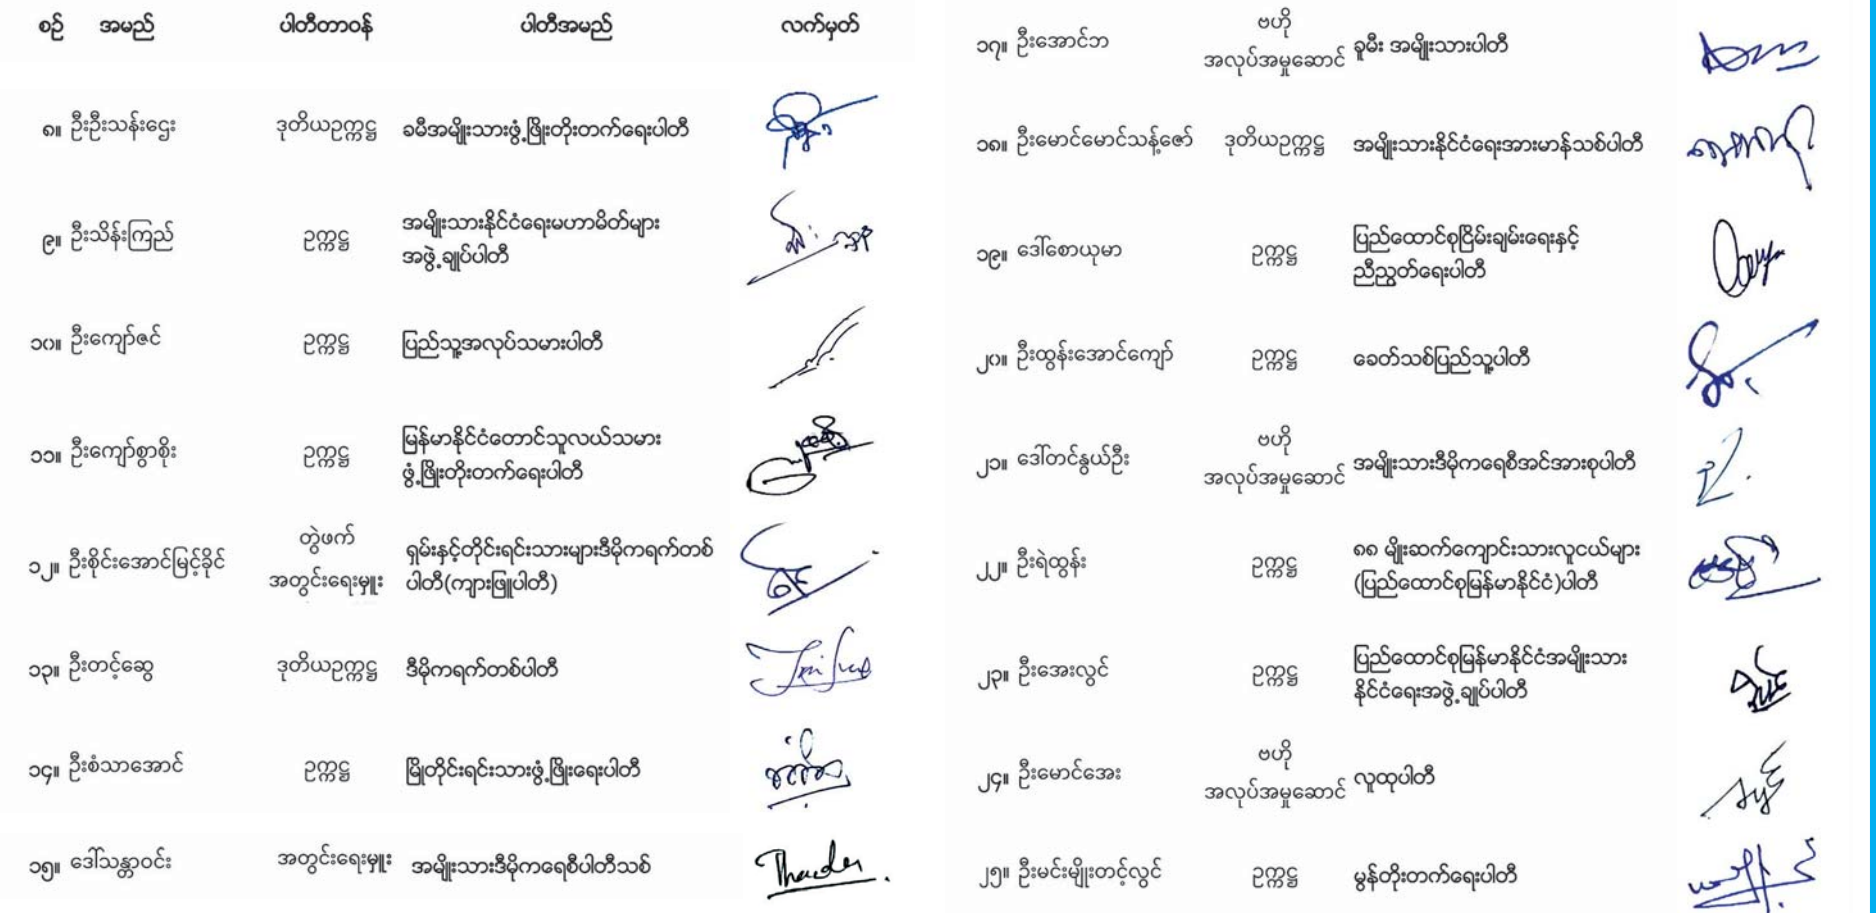 စဉ် အမည် ပါတီတာဝန် ပါတီအမည် လက်မှတ်
၈။ ဦးဦးသန်းဌေး ဒုတိယဥက္ကဋ္ဌ ခမီအမျိုးသားဖွံ့ဖြိုးတိုးတက်ရေးပါတီ
၉။ ဦးသိန်းကြည် ဥက္ကဋ္ဌ အမျိုးသားနိုင်ငံရေးမဟာမိတ်များ
အဖွဲ့ချုပ်ပါတီ
၁၀။ ဦးကျော်ဇင် ဥက္ကဋ္ဌ ပြည်သူ့အလုပ်သမားပါတီ
၁၁။ ဦးကျော်စွာစိုး ဥက္ကဋ္ဌ မြန်မာနိုင်ငံတောင်သူလယ်သမား
ဖွံ့ဖြိုးတိုးတက်ရေးပါတီ
၁၂။ ဦးစိုင်းအောင်မြင့်ခိုင် တွဲဖက် ရှမ်းနှင့်တိုင်းရင်းသားများဒီမိုကရက်တစ်
အတွင်းရေးမှူး ပါတီ(ကျားဖြူပါတီ)
၁၃။ ဦးတင့်ဆွေ ဒုတိယဥက္ကဋ္ဌ ဒီမိုကရက်တစ်ပါတီ
၁၄။ ဦးစံသာအောင် ဥက္ကဋ္ဌ မြိုတိုင်းရင်းသားဖွံ့ဖြိုးရေးပါတီ
၁၅။ ဒေါ်သန္တာဝင်း အတွင်းရေးမှူး အမျိုးသားဒီမိုကရေစီပါတီသစ်
၁၇။ ဦးအောင်ဘ ဗဟို
အလုပ်အမှုဆောင် ခူမီး အမျိုးသားပါတီ
၁၈။ ဦးမောင်မောင်သန့်ဇော် ဒုတိယဥက္ကဋ္ဌ အမျိုးသားနိုင်ငံရေးအားမာန်သစ်ပါတီ
၁၉။ ဒေါ်စောယုမာ ဥက္ကဋ္ဌ ပြည်ထောင်စုငြိမ်းချမ်းရေးနှင့်
ညီညွတ်ရေးပါတီ
၂၀။ ဦးထွန်းအောင်ကျော် ဥက္ကဋ္ဌ ခေတ်သစ်ပြည်သူ့ပါတီ
၂၁။ ဒေါ်တင်နွယ်ဦး ဗဟို
အလုပ်အမှုဆောင် အမျိုးသားဒီမိုကရေစီအင်အားစုပါတီ
၂၂။ ဦးရဲထွန်း ဥက္ကဋ္ဌ ၈၈ မျိုးဆက်ကျောင်းသားလူငယ်များ
(ပြည်ထောင်စုမြန်မာနိုင်ငံ)ပါတီ
၂၃။ ဦးအေးလွင် ဥက္ကဋ္ဌ ပြည်ထောင်စုမြန်မာနိုင်ငံအမျိုးသား
နိုင်ငံရေးအဖွဲ့ချုပ်ပါတီ
၂၄။ ဦးမောင်အေး ဗဟို
အလုပ်အမှုဆောင် လူထုပါတီ
၂၅။ ဦးမင်းမျိုးတင့်လွင် ဥက္ကဋ္ဌ မွန်တိုးတက်ရေးပါတီ